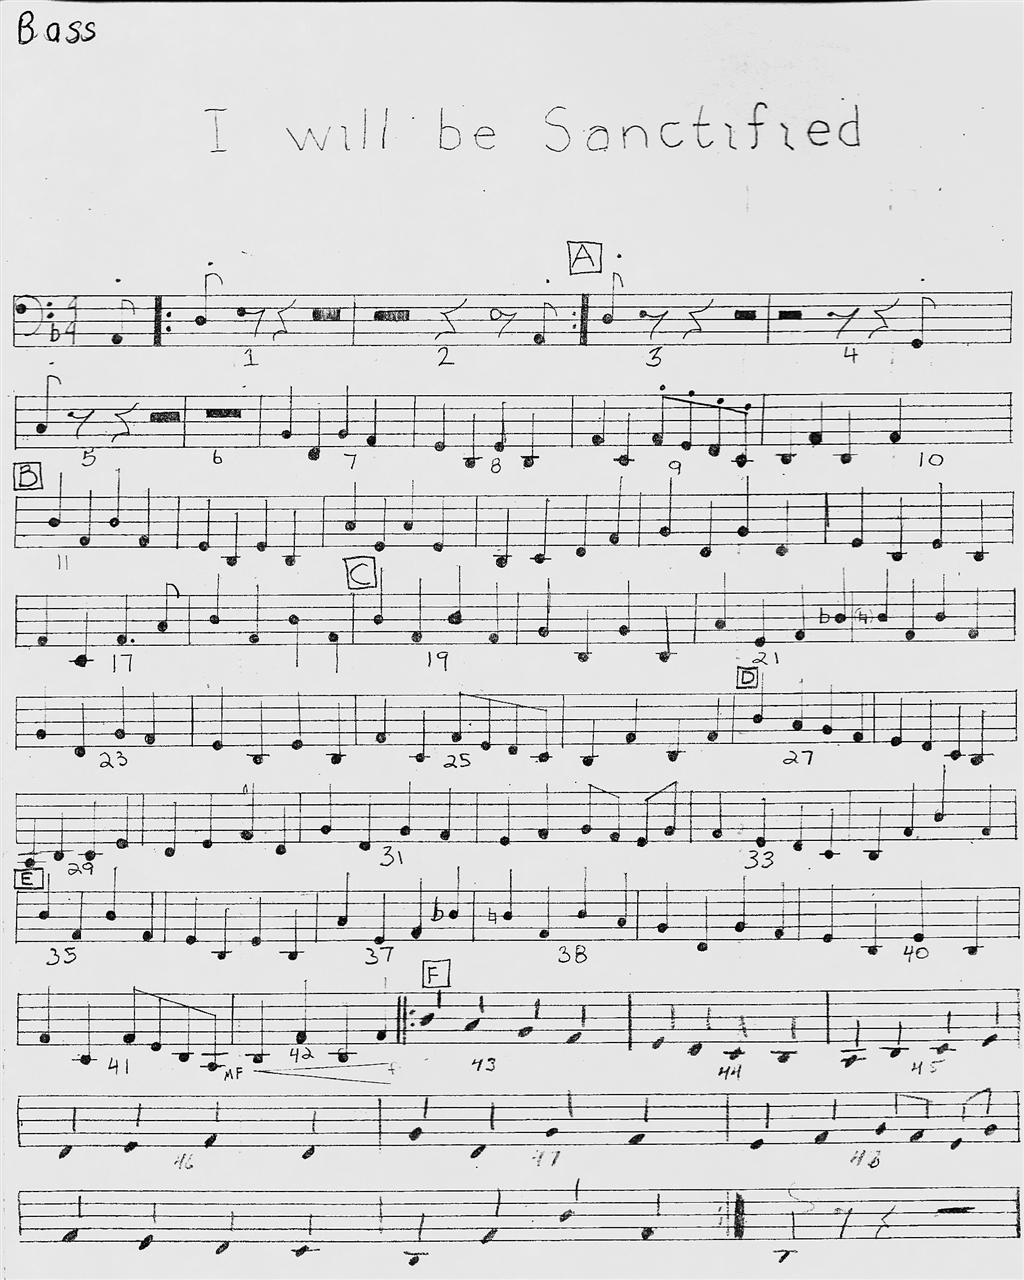 Bass
I will be Sanctified
A
4
b4
1 2 3 4
5 6 7 8 9 10
B
11
C
17 19 21
D
23 25 27
29 31 33
E
b ♮
35 37 38 40
F
41 MF 42 f 43 44 45
46 47 48